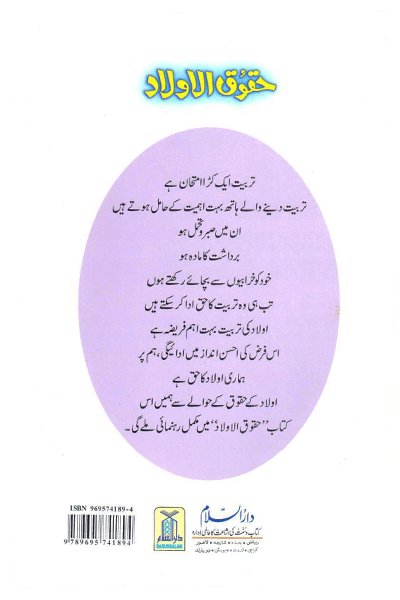 حقوق الاولاد
تربیت ایک کڑا امتحان ہے
تربیت دینے والے ہاتھ بہت اہمیت کے حامل ہوتے ہیں
ان میں صبر و تحمل ہو
برداشت کا مادہ ہو
خود کو خرابیوں سے بچائے رکھتے ہوں
تب ہی وہ تربیت کا حق ادا کر سکتے ہیں
اولاد کی تربیت بہت اہم فریضہ ہے
اس فرض کی احسن انداز میں ادائیگی، ہم پر
ہماری اولاد کا حق ہے
اولاد کے حقوق کے حوالے سے ہمیں اس
کتاب ”حقوق الاولاد“ میں مکمل رہنمائی ملے گی۔
ISBN 969574189-4
9 789695 741894
دارالسلام
DARUSSALAM
دارالسلام
کتاب و سنت کی اشاعت کا عالمی ادارہ
ریاض • جدہ • شارجہ • لاہور
کراچی • لندن • ہیوسٹن • نیویارک